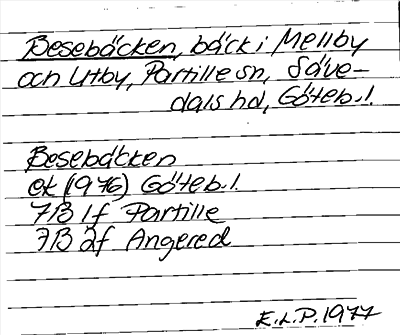 Besebäcken, bäck i Mellby
och Utby, Partille sn, Säve-
dals hd, Göteb. l.
Besebäcken
ek (1976) Göteb. l.
7B 1f Partille
7B 2f Angered
E.L.P. 1977